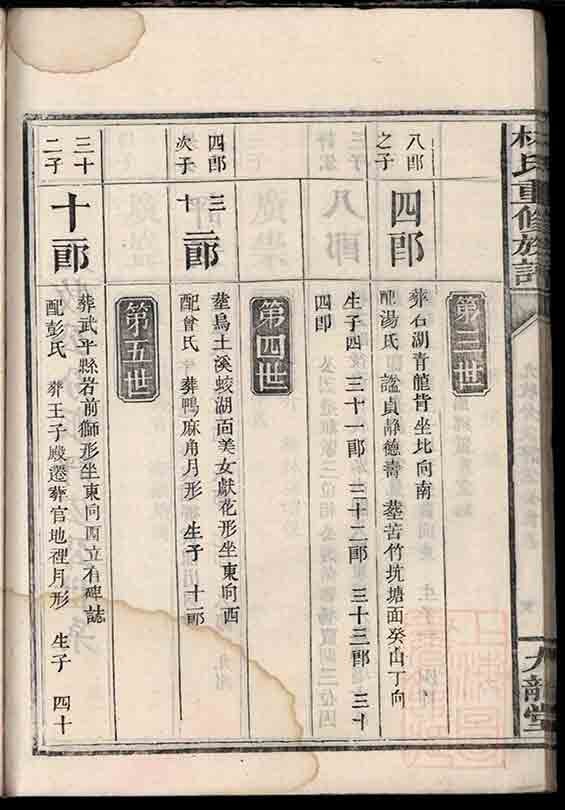 林氏重修族譜
九龍堂
第三世
八郎
之子
四郎
葬石湖青龍背坐北向南
配湯氏 諡貞靜德壽 塟苦竹坑塘面癸山丁向
生子四 三十一郎 三十二郎 三十三郎 三十
四郎
第四世
四郎
次子
三十二郎
塟鳥土溪蛟湖面美女獻花形坐東向西
配曾氏 葬鴨麻角月形 生子 十一郎
第五世
三十
二子
十一郎
葬武平縣岩前獅形坐東向西立有碑誌
配彭氏 葬王子殿遷葬官地裡月形 生子 四十